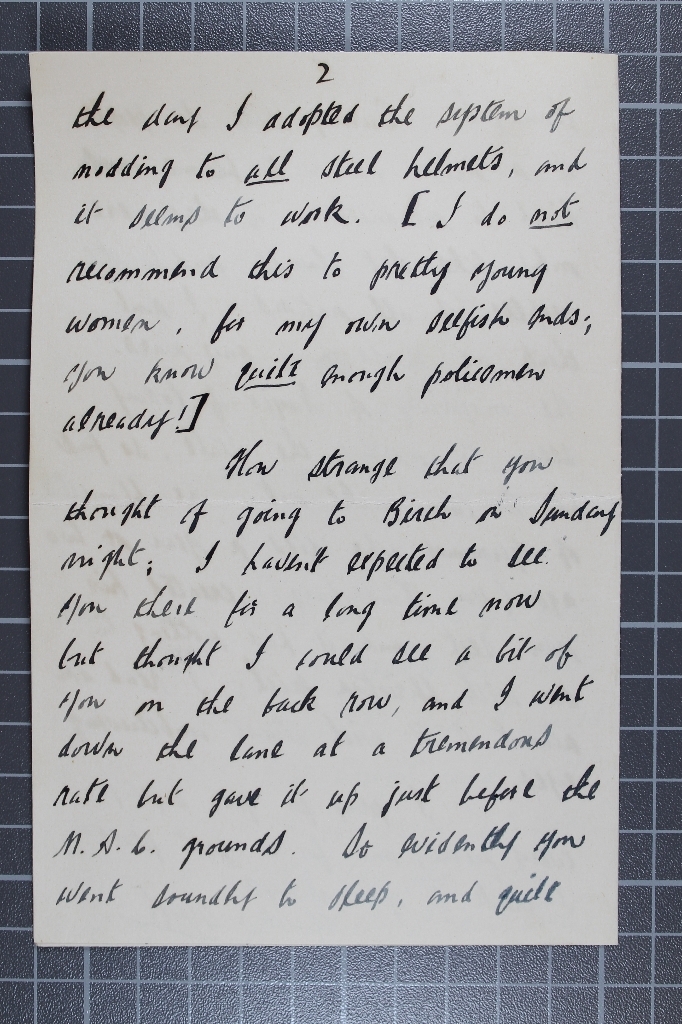 2
the day I adopted the system of
nodding to all steel helmets, and
it seems to work. [ I do not
recommend this to pretty young
women, for my own selfish ends;
you know quite enough policemen
already!]
How strange that you
thought of going to Birch on Sunday
night; I haven't expected to see
you there for a long time now
but thought I could see a bit of
you on the back row, and I went
down the lane at a tremendous
rate but gave it up just before the
N.S.C. grounds. So evidently you
went soundly to sleep, and quite